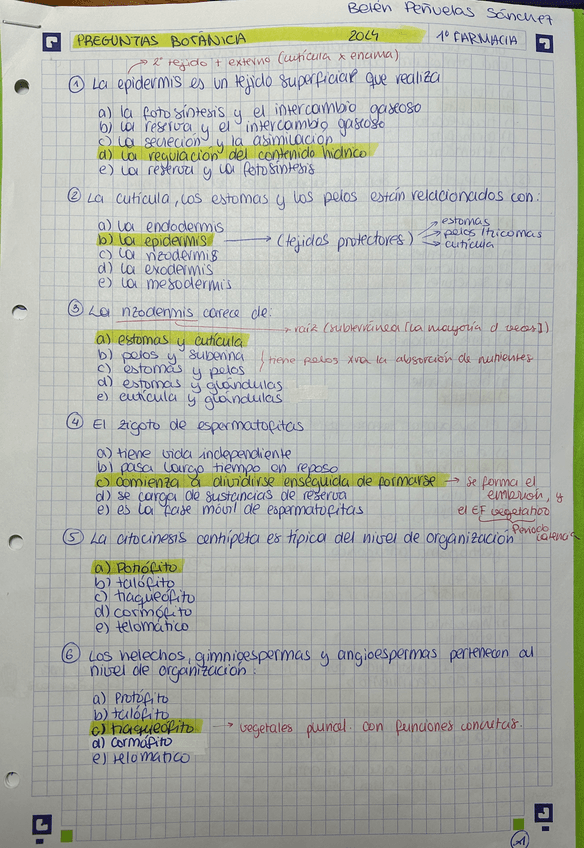 Belén Peñuelas Sánchez
PREGUNTAS BOTÁNICA 2024 1º FARMACIA
→ 2º tejido + externo (cutícula x encima)
① La epidermis es un tejido superficial que realiza
a) la fotosíntesis y el intercambio gaseoso
b) la reserva y el intercambio gaseoso
c) la secreción y la asimilación
d) la regulación del contenido hídrico
e) la reserva y la fotosíntesis
② La cutícula, los estomas y los pelos están relacionados con:
a) la endodermis
b) la epidermis → (tejidos protectores) → estomas
→ pelos/tricomas
→ cutícula
c) la rizodermis
d) la exodermis
e) la mesodermis
③ La rizodermis carece de:
→ raíz (subterránea [la mayoría d veces])
a) estomas y cutícula
b) pelos y suberina
c) estomas y pelos
} tiene pelos xra la absorción de nutrientes
d) estomas y glándulas
e) cutícula y glándulas
④ El zigoto de espermatofitas
a) tiene vida independiente
b) pasa largo tiempo en reposo
c) comienza a dividirse enseguida de formarse → se forma el
embrión, y
d) se carga de sustancias de reserva
el EF vegetativo
e) es la fase móvil de espermatofitas
Periodo
⑤ La citocinesis centrípeta es típica del nivel de organización
a) Protófito
b) talófito
c) traqueófito
d) cormófito
e) telomático
⑥ Los helechos, gimnoespermas y angioespermas pertenecen al
nivel de organización:
a) Protófito
b) talófito
c) traqueófito → vegetales pluricel. con funciones concretas.
d) cormófito
e) telomático